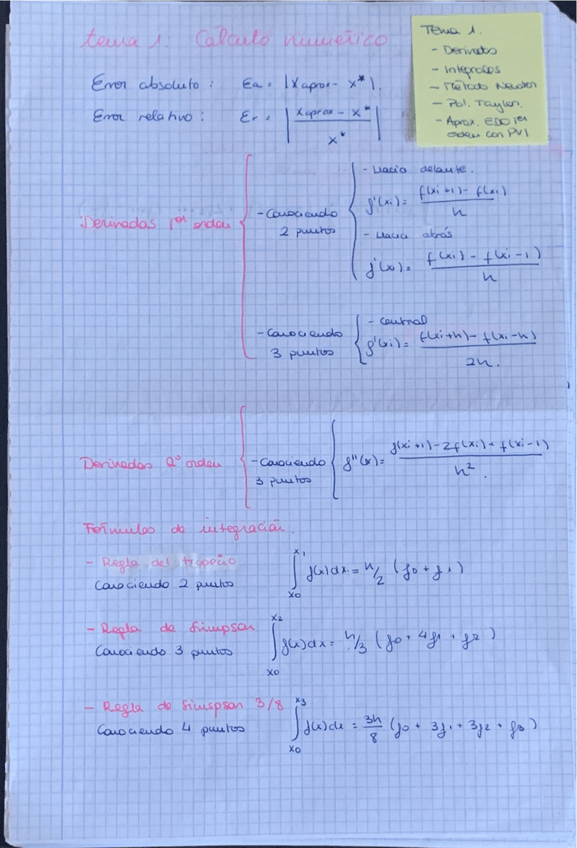 tema 1: Cálculo numérico
Tema 1.
- Derivadas
- Integrales
- Método Newton
- Pol. Taylor.
- Aprox. EDO 1er
orden con PVI
Error absoluto : Ea = |Xaprox - x*|.
Error relativo : Er = |(xaprox - x*) / x*|
Derivadas 1er orden
- Conociendo
2 puntos
- Hacia delante.
f'(xi) = (f(xi+1) - f(xi)) / h
- Hacia atrás
f'(xi) = (f(xi) - f(xi-1)) / h
- Conociendo
3 puntos
- Central
f'(xi) = (f(xi+h) - f(xi-h)) / 2h.
Derivadas 2º orden
- Conociendo
3 puntos
f''(x) = (f(xi+1) - 2f(xi) + f(xi-1)) / h².
Fórmulas de integración.
- Regla del trapecio
Conociendo 2 puntos
∫x0^x1 f(x)dx = h/2 (f0 + f1)
- Regla de Simpson
Conociendo 3 puntos
∫x0^x2 f(x)dx = h/3 (f0 + 4f1 + f2)
- Regla de Simpson 3/8
Conociendo 4 puntos
∫x0^x3 f(x)dx = 3h/8 (f0 + 3f1 + 3f2 + f3)